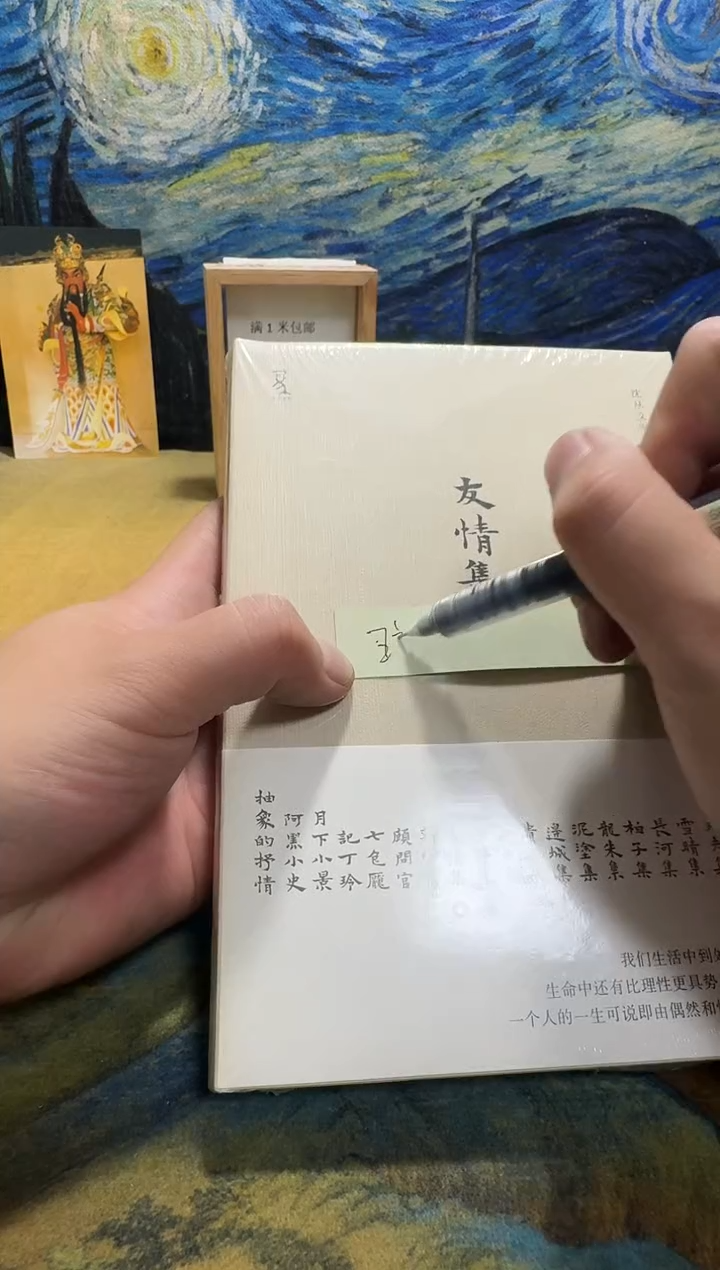 满1米包邮
沈从文
友情集
抽象的抒情
阿黑小史
月下小景
記丁玲
七色魘
顧問官
邊城集
泥塗集
龍朱集
柏子集
長河集
雪晴集
我们生活中到处
生命中还有比理性更具势
一个人的一生可说即由偶然和情